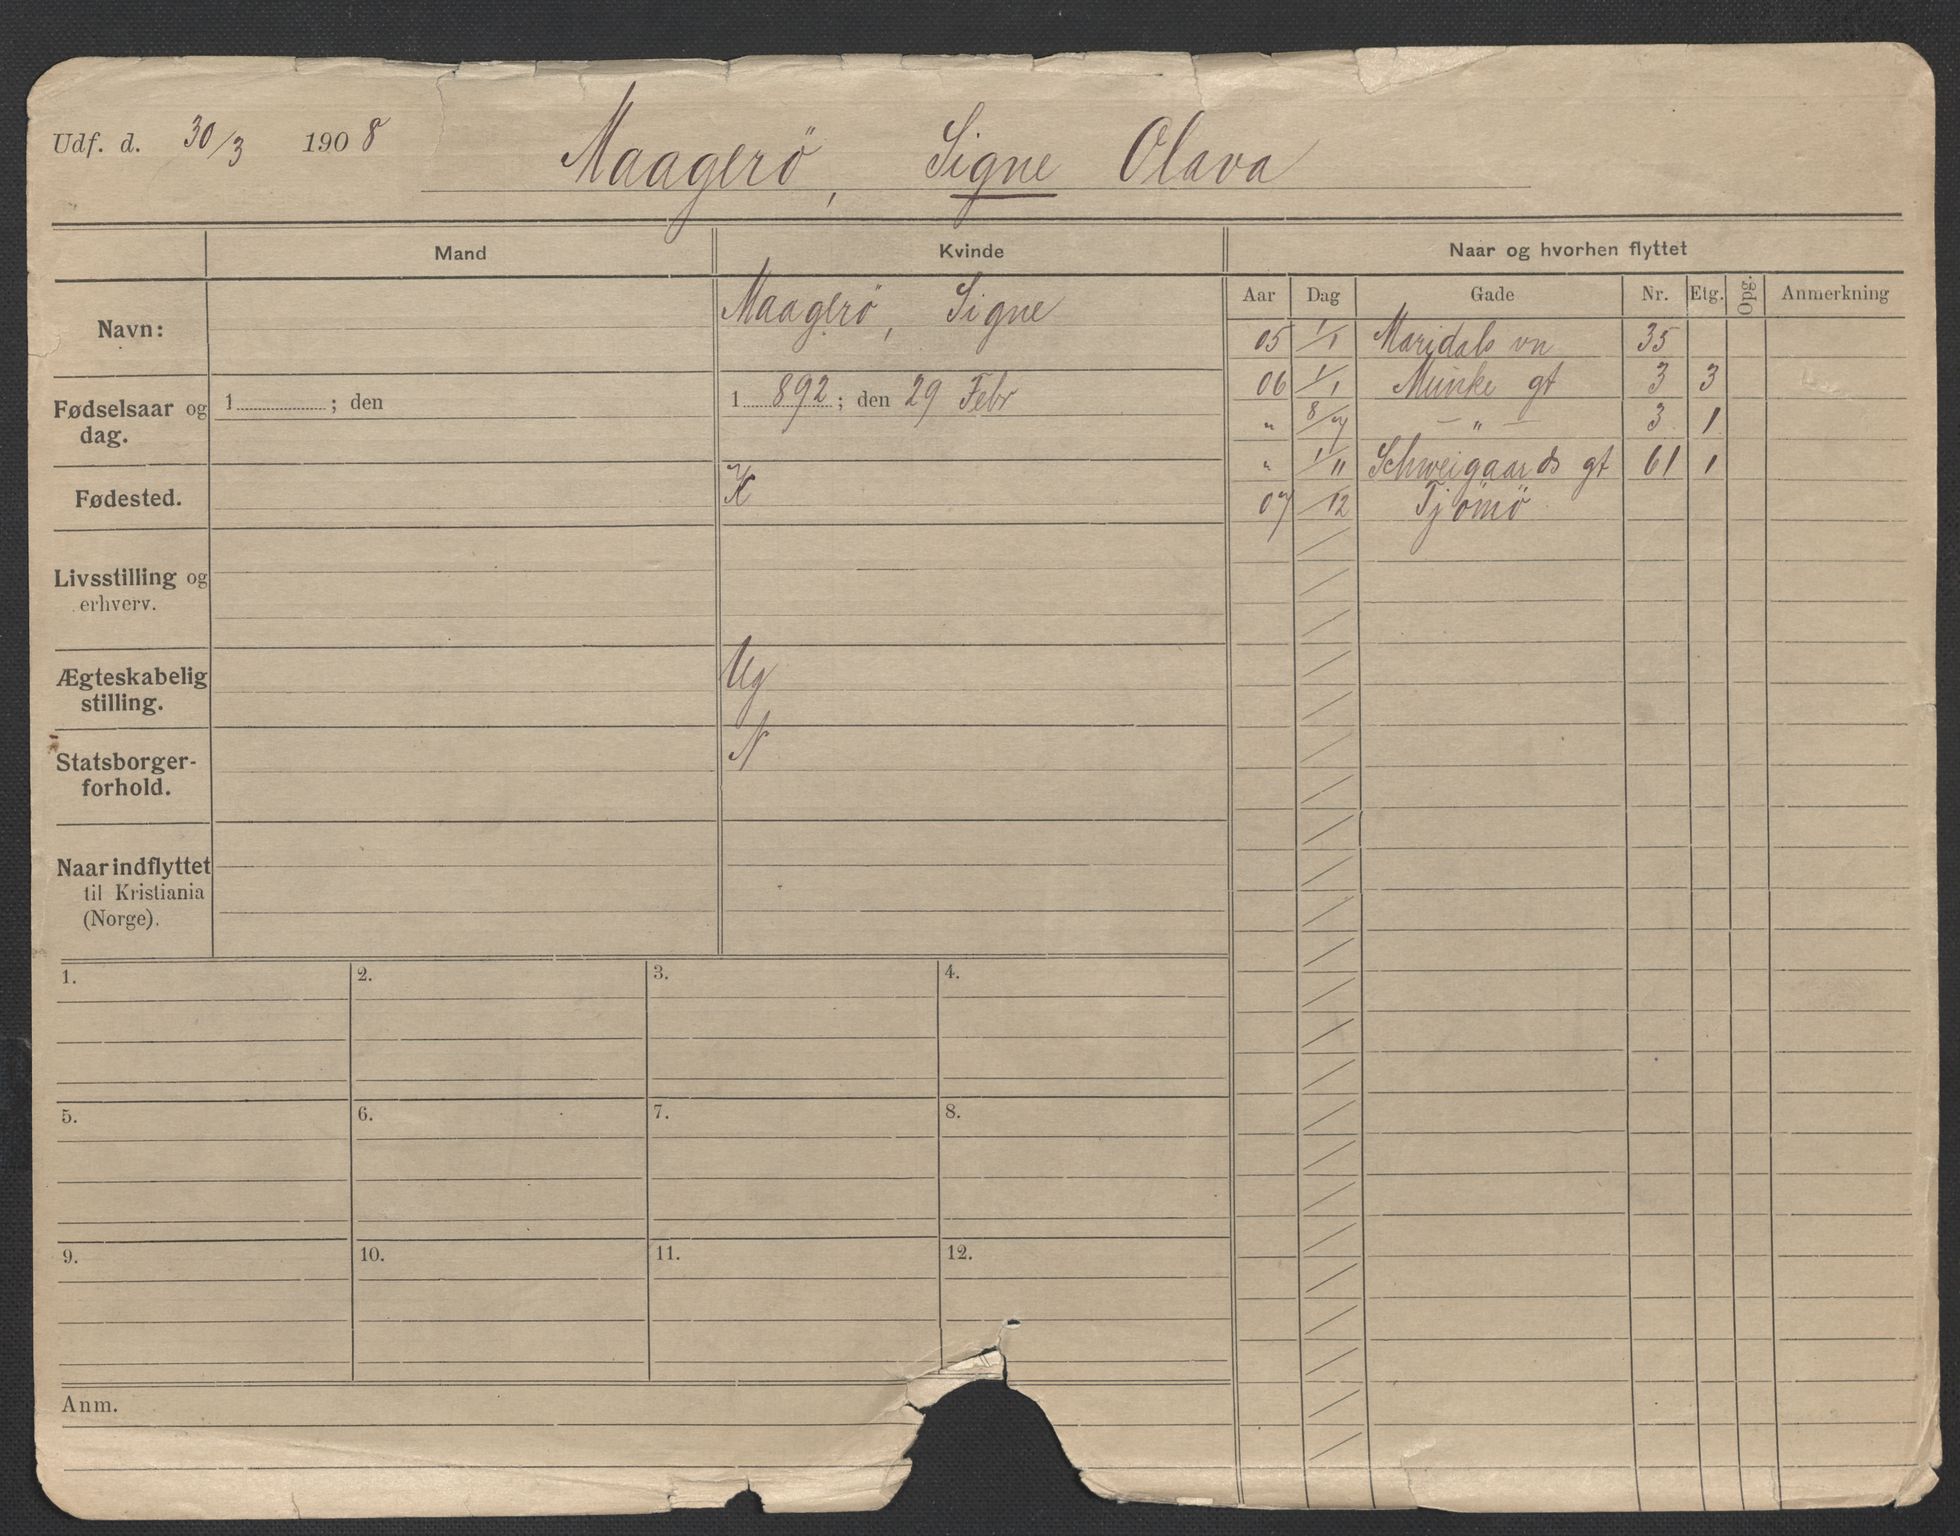 Udf. d. 30/3 1908 Maagerö, Signe Olava
Mand Kvinde Naar og hvorhen flyttet
Aar Dag Gade Nr. Etg. Opg. Anmerkning
Navn: Maagerö, Signe
Fødselsaar og dag. 1 ; den 1 892 ; den 29 Febr
Fødested. K
Livsstilling og erhverv.
Ægteskabelig stilling. Ug
Statsborgerforhold. N
Naar indflyttet til Kristiania (Norge).
05 1/1 Maridals vn 35
06 1/1 Munke gt 3 3
" 8/7 — " — 3 1
" 1/11 Schweigaards gt 61 1
07 /12 Tjömö
1. 2. 3. 4.
5. 6. 7. 8.
9. 10. 11. 12.
Anm.